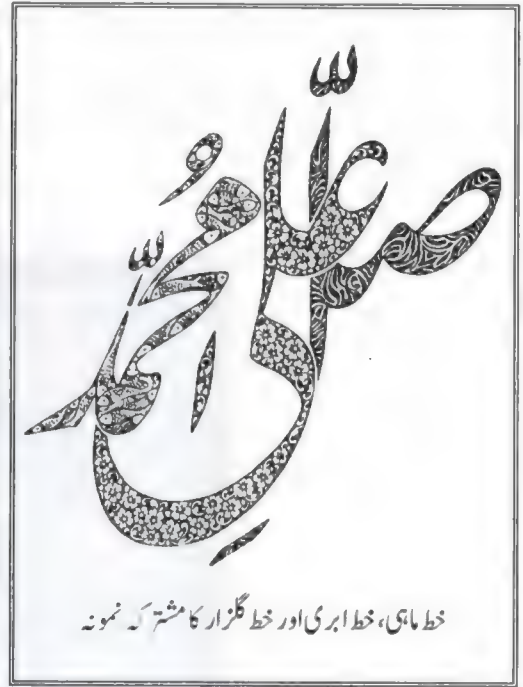 صَلِّ عَلٰی مُحَمَّد
خط ماہی، خط ابری اور خط گلزار کا مشترکہ نمونہ